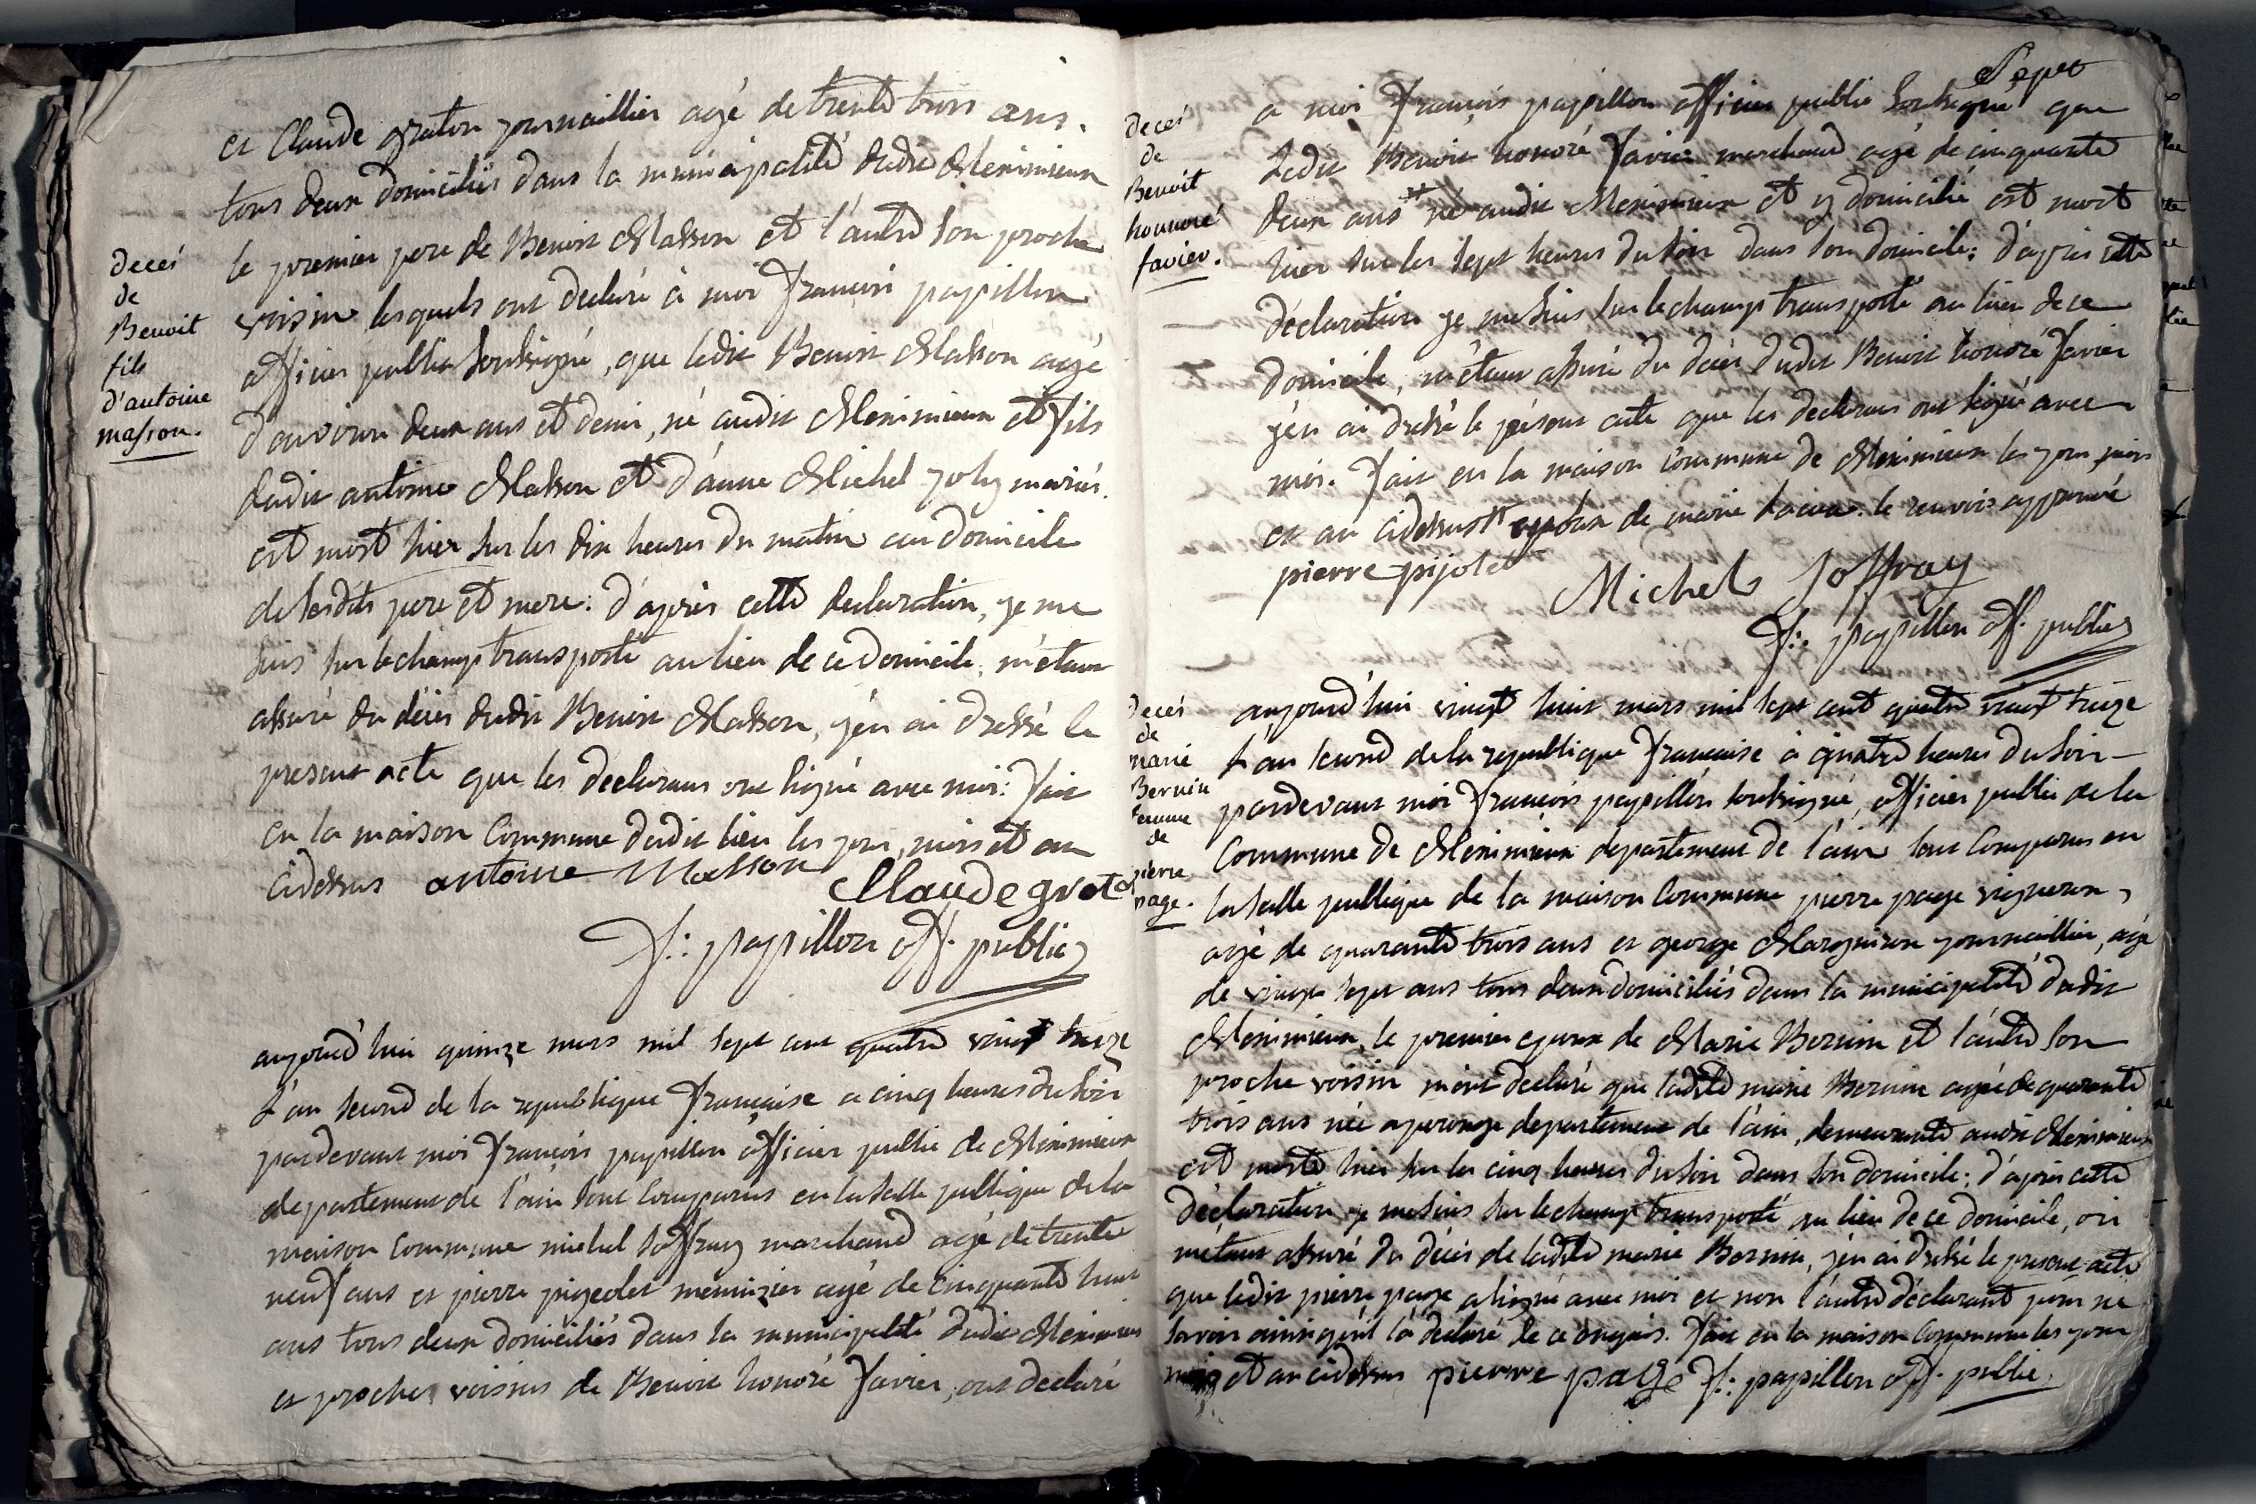 et Claude graton journaillier agé de trente trois ans.
tous deux domiciliés dans la municipalité dudit Meximieux
le premier pere de Benoit Masson et l'autre son proche
voisin lesquels ont declaré à moi françois papillon
officier public soussigné, que ledit Benoit Masson agé
d'environ deux ans et demi, né audit Meximieux et fils
dudit antoine Masson et d'anne Michel joly mariés.
est mort hier sur les dix heures du matin au domicile
de sesdits pere et mere: d'après cette declaration, je me
suis sur le champ transporté au lieu de ce domicile, m'étant
assuré du décès dudit Benoit Masson, j'en ai dressé le
present acte que les declarans ont signé avec moi. fait
en la maison Commune dudit lieu les jour, mois et an
cidessus antoine Masson
Claude grat
f: papillon off. public
decés
de
Benoit
fils
d'antoine
masson.
aujourd'hui quinze mars mil sept cent quatre vingt treize
l'an second de la republique française a cinq heures du soir
pardevant moi françois papillon officier public de Meximieux
departement de l'ain sont Comparus en la salle publique de la
maison Commune michel joffray marchand agé de trente
neuf ans et pierre pijeolet menuizier agé de cinquante huit
ans tous deux domiciliés dans la municipalité dudit Meximieux
et proches voisins de Benoit honoré favier, ont declaré
Sept
a moi françois papillon officier public soussigné que
ledit Benoit honoré favier marchand agé de cinquante
deux ans né audit Meximieux et y domicilié est mort
hier sur les sept heures du soir dans son domicile: d'après cette
déclaration je me suis sur le champ transporté au lieu de ce
domicile, m'étant assuré du décès dudit Benoit honoré favier
j'en ai dressé le présent acte que les declarans ont signé avec
moi. fait en la maison Commune de Meximieux les jour, mois
et an cidessus epoux de marie le renvois approuvé
pierre pijolet
Michel Joffray
f: papillon off. public
decés
de
Benoit
honnoré
favier.
aujourd'hui vingt huit mars mil sept cent quatre vingt treize
l'an second de la republique française à quatre heures du soir
pardevant moi françois papillon soussigné, officier public de la
Commune de Meximieux departement de l'ain sont Comparus en
la salle publique de la maison Commune pierre page vigneron,
agé de quarante trois ans et george Marguiron journaillier, agé
de vingt sept ans tous deux domiciliés dans la municipalité dudit
Meximieux, le premier epoux de Marie Bernin et l'autre son
proche voisin m'ont declaré que ladite marie Bernin agée de quarante
trois ans née a perouge departement de l'ain, demeurante audit Meximieux
est morte hier sur les cinq heures du soir dans son domicile; d'après cette
déclaration je me suis sur le champ transporté au lieu de ce domicile, où
m'étant assuré du décès de ladite marie Bernin, j'en ai dressé le present acte
que ledit pierre page a signé avec moi et non l'autre déclarant pour ne
savoir ainsi qu'il l'a declaré de ce enquis. fait en la maison Commune les jour
mois et an cidessus pierre page f: papillon off. public.
decés
de
marie
Bernin
femme
de
pierre
page.